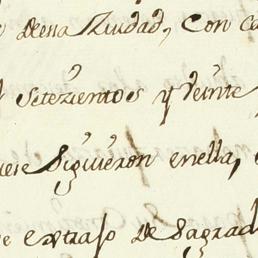 dessa Ziudad, Con
Setezientos y veinte
Siguieron enella,
extrajo de Sagrad